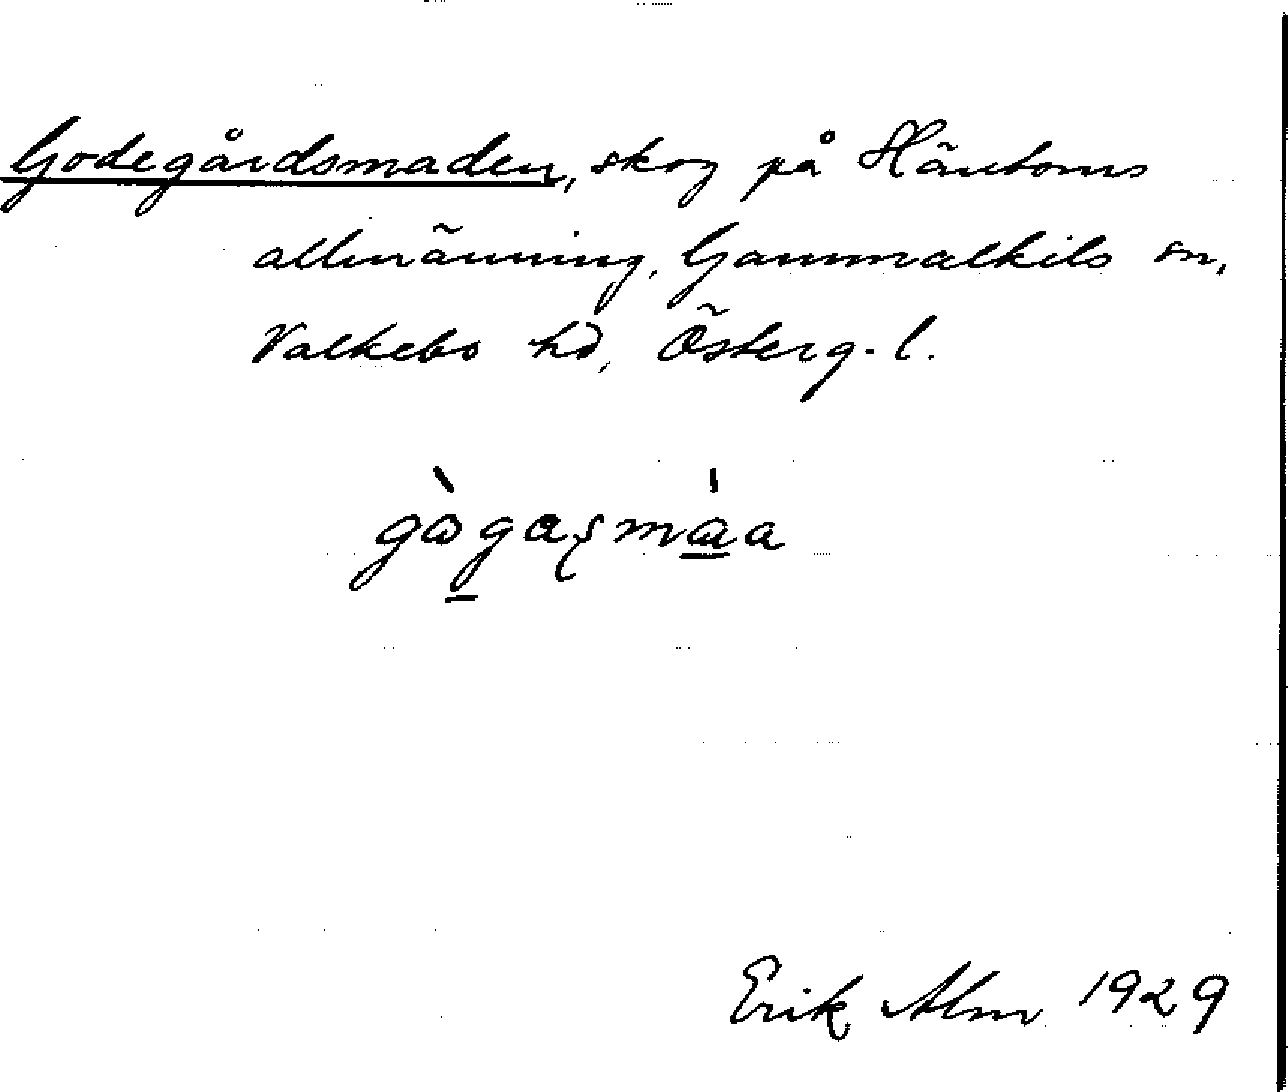 Godegårdsmaden, skog på Häntorns
allmänning, Gammalkils sn,
Valkebo hd, Österg. l.
Erik Alm 1929